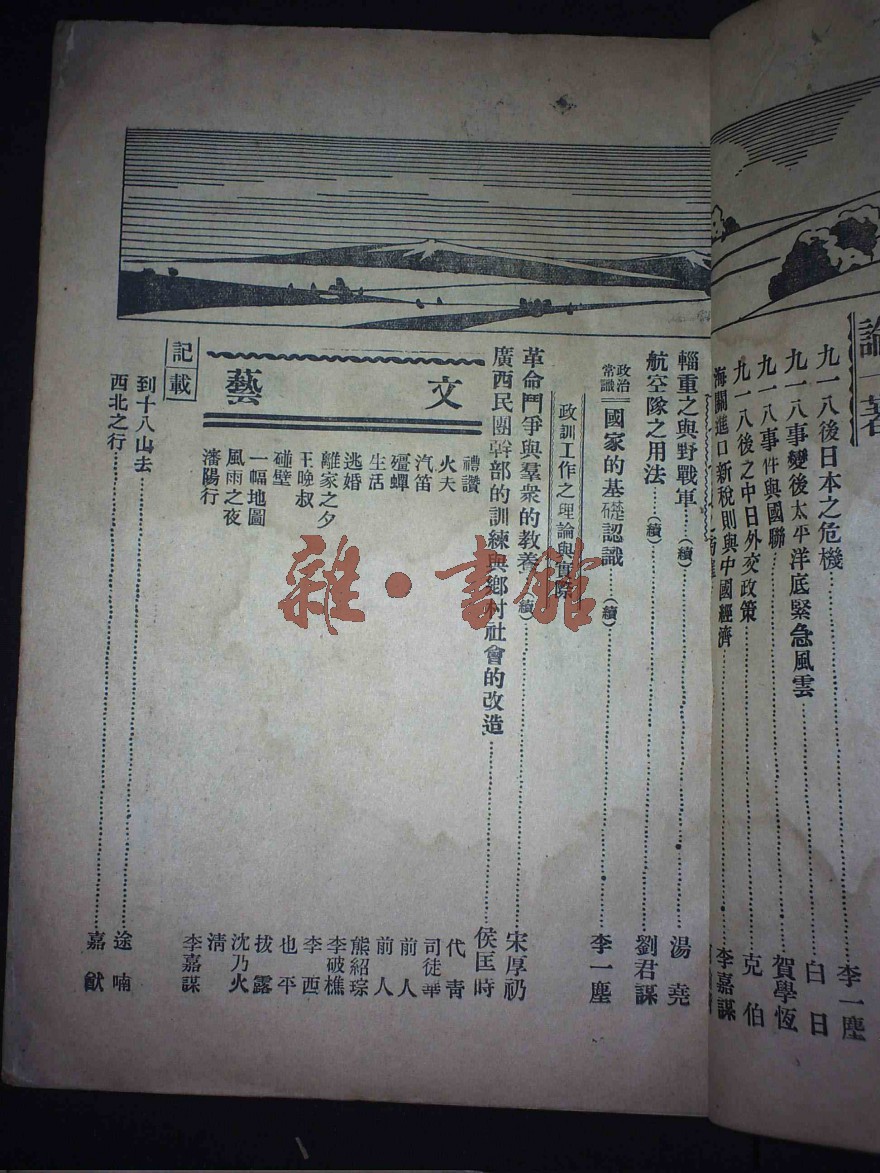 論著
九一八後日本之危機……李一塵
九一八事變後太平洋底緊急風雲……白日
九一八事件與國聯……賀學恆
九一八後之中日外交政策……克伯
海關進口新稅則與中國經濟……李嘉謀
輜重之與野戰軍……(續)……湯堯
航空隊之用法……(續)……劉君謀
政治常識 國家的基礎認識……(續)……李一塵
政訓工作之理論與實際
革命鬥爭與羣衆的教養……(續)……宋厚礽
廣西民團幹部的訓練與鄉村社會的改造……侯匡時
文藝
禮讚 代青
火夫 司徒華
汽笛 前人
殭蟬 前人
生活 熊紹琮
逃婚 李破樵
離家之夕 李西
王晚叔 也平
碰壁 拔露
一幅地圖 沈乃火
風雨之夜 清
瀋陽行 李嘉謀
記載
到十八山去……途喃
西北之行……嘉猷
雜·書館